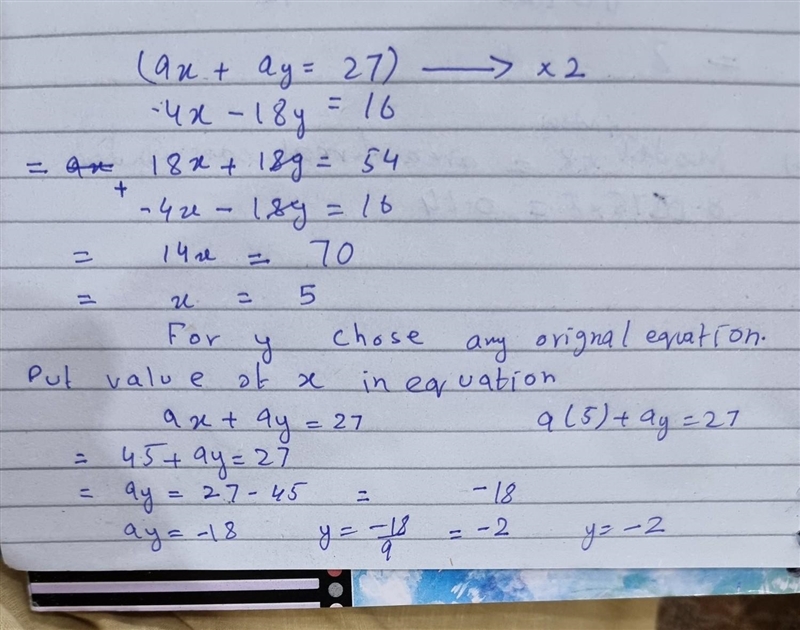 (9x + 9y = 27) → ×2
-4x - 18y = 16
= 18x + 18y = 54
+ -4x - 18y = 16
= 14x = 70
= x = 5
For y chose any orignal equation.
Put value of x in equation
9x + 9y = 27 9(5) + 9y = 27
= 45 + 9y = 27
= 9y = 27 - 45 = -18
9y = -18 y = -18/9 = -2 y = -2